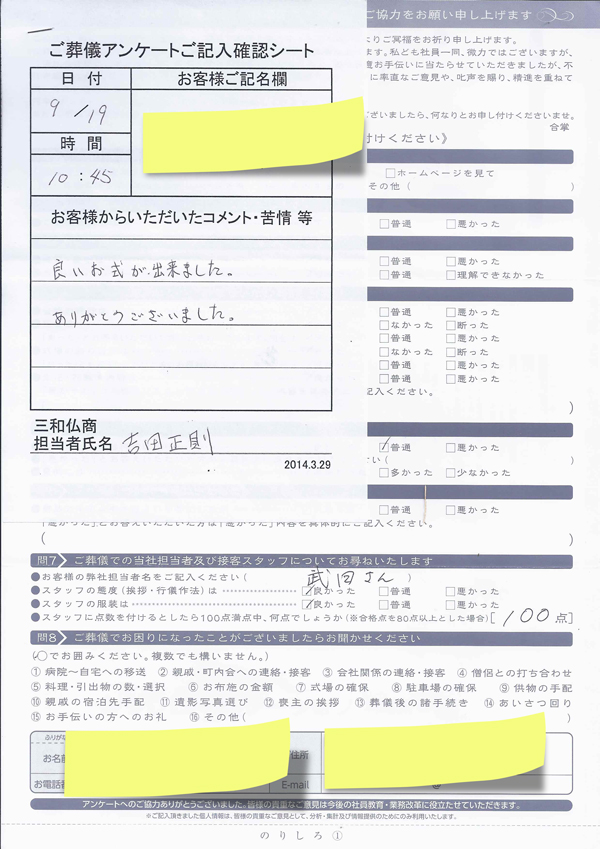 ご協力をお願い申し上げます
ご葬儀アンケートご記入確認シート
日付
お客様ご記名欄
9/19
時間
10:45
お客様からいただいたコメント・苦情 等
良いお式が出来ました。
ありがとうございました。
三和仏商
担当者氏名 吉田正則
2014.3.29
りご冥福をお祈り申し上げます。
ます。私ども社員一同、微力ではございますが、
お手伝いに当たらせていただきましたが、不
に率直なご意見や、叱声を賜り、精進を重ねて
ございましたら、何なりとお申し付けくださいませ。
合掌
付けください》
□ホームページを見て
その他( )
□普通 □悪かった
□普通 □悪かった
□普通 □理解できなかった
□普通 □悪かった
□なかった □断った
□普通 □悪かった
□なかった □断った
□普通 □悪かった
□普通 □悪かった
記入ください。
)
☑普通 □悪かった
さい( )
□多かった □少なかった
□普通 □悪かった
「悪かった」とお答えいただいた方は「悪かった」内容を具体的にご記入ください。
( )
問7 ご葬儀での当社担当者及び接客スタッフについてお尋ねいたします
●お客様の弊社担当者名をご記入ください( 武田さん )
●スタッフの態度(挨拶・行儀作法)は ☑良かった □普通 □悪かった
●スタッフの服装は ☑良かった □普通 □悪かった
●スタッフに点数を付けるとしたら100点満点中、何点でしょうか(※合格点を80点以上とした場合)[ 100 点]
問8 ご葬儀でお困りになったことがございましたらお聞かせください
(○でお囲みください。複数でも構いません。)
①病院〜自宅への移送 ②親戚・町内会への連絡・接客 ③会社関係の連絡・接客 ④僧侶との打ち合わせ
⑤料理・引出物の数・選択 ⑥お布施の金額 ⑦式場の確保 ⑧駐車場の確保 ⑨供物の手配
⑩親戚の宿泊先手配 ⑪遺影写真選び ⑫喪主の挨拶 ⑬葬儀後の諸手続き ⑭あいさつ回り
⑮お手伝いの方へのお礼 ⑯その他( )
ふりがな
お名前
住所
お電話
E-mail
@
アンケートへのご協力ありがとうございました。皆様の貴重なご意見は今後の社員教育・業務改革に役立たせていただきます。
※ご記入頂きました個人情報は、皆様の貴重なご意見として、分析・集計及び情報提供のためにのみ利用いたします。
のりしろ①